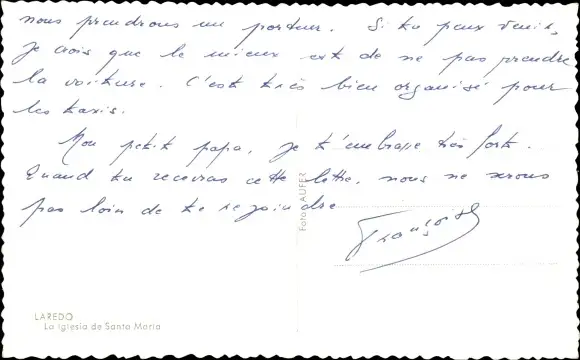 nous prendrons un porteur. Si tu peux venir,
je crois que le mieux est de ne pas prendre
la voiture. C'est très bien organisé pour
les taxis.
Mon petit papa, je t'embrasse très fort.
Quand tu recevras cette lettre, nous ne serons
pas loin de te rejoindre
Françoise
Foto LAUFER
LAREDO
La Iglesia de Santa Maria